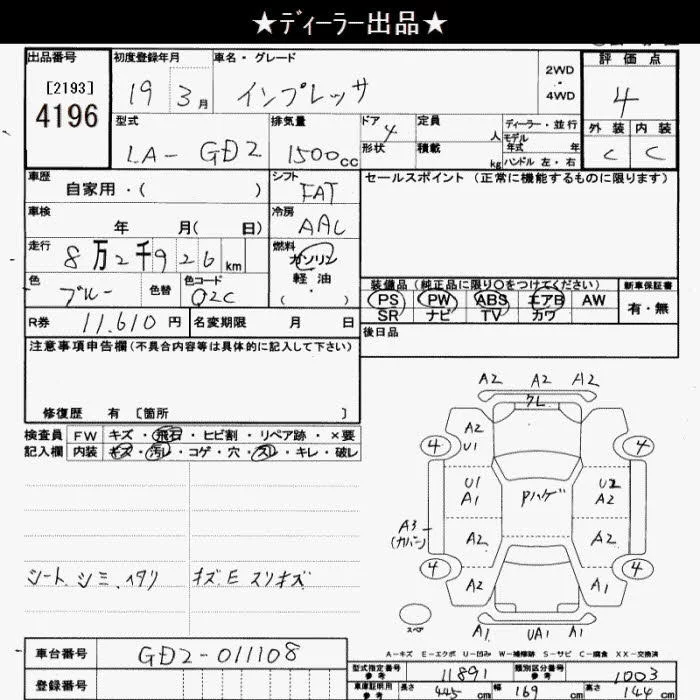 ★ディーラー出品★
出品番号 初度登録年月 車名・グレード 2WD 評価点
[2193] 19 3月 インプレッサ 4WD 4
4196
型式 排気量 ドア 4 定員 人 ディーラー・並行 外装 内装
LA-GD2 1500cc 形状 積載 kg モデル年式 年 C C
ハンドル 左・右
車歴 自家用・( ) シフト FAT セールスポイント(正常に機能するものに限ります)
車検 年 月( 日) 冷房 AAC
走行 8万2千926km 燃料 ガソリン 軽油 ( ・ )
色 ブルー 色替 色コード 02C
装備品(純正品に限り○をつけてください) 新車保証書
PS PW ABS エアB AW 有・無
SR ナビ TV カワ
R券 11,610円 名変期限 月 日 後日品
注意事項申告欄(不具合内容等は具体的に記入して下さい)
修復歴 有 [箇所 ]
検査員 FW キズ・飛石・ヒビ割・リペア跡・×要
記入欄 内装 キズ・汚レ・コゲ・穴・スレ・キレ・破レ
シート シミ、ヘタリ
キズE スリキズ
A2 A2 A2
クレ
A2
U1
4 4
U1
A1
Pハゲ
U2
A2
A3
(カバン)
A2 A2
4 4
A2 A1
スペア
A1 UA1 A1
A-キズ E-エクボ U-凹み W-補修跡 S-サビ C-腐食 XX-交換済
車台番号 GD2-011108
登録番号
型式指定番号 参考 11891 類別区分番号 参考 1003
車庫証明用 参考 長さ 445cm 幅 169cm 高さ 144cm